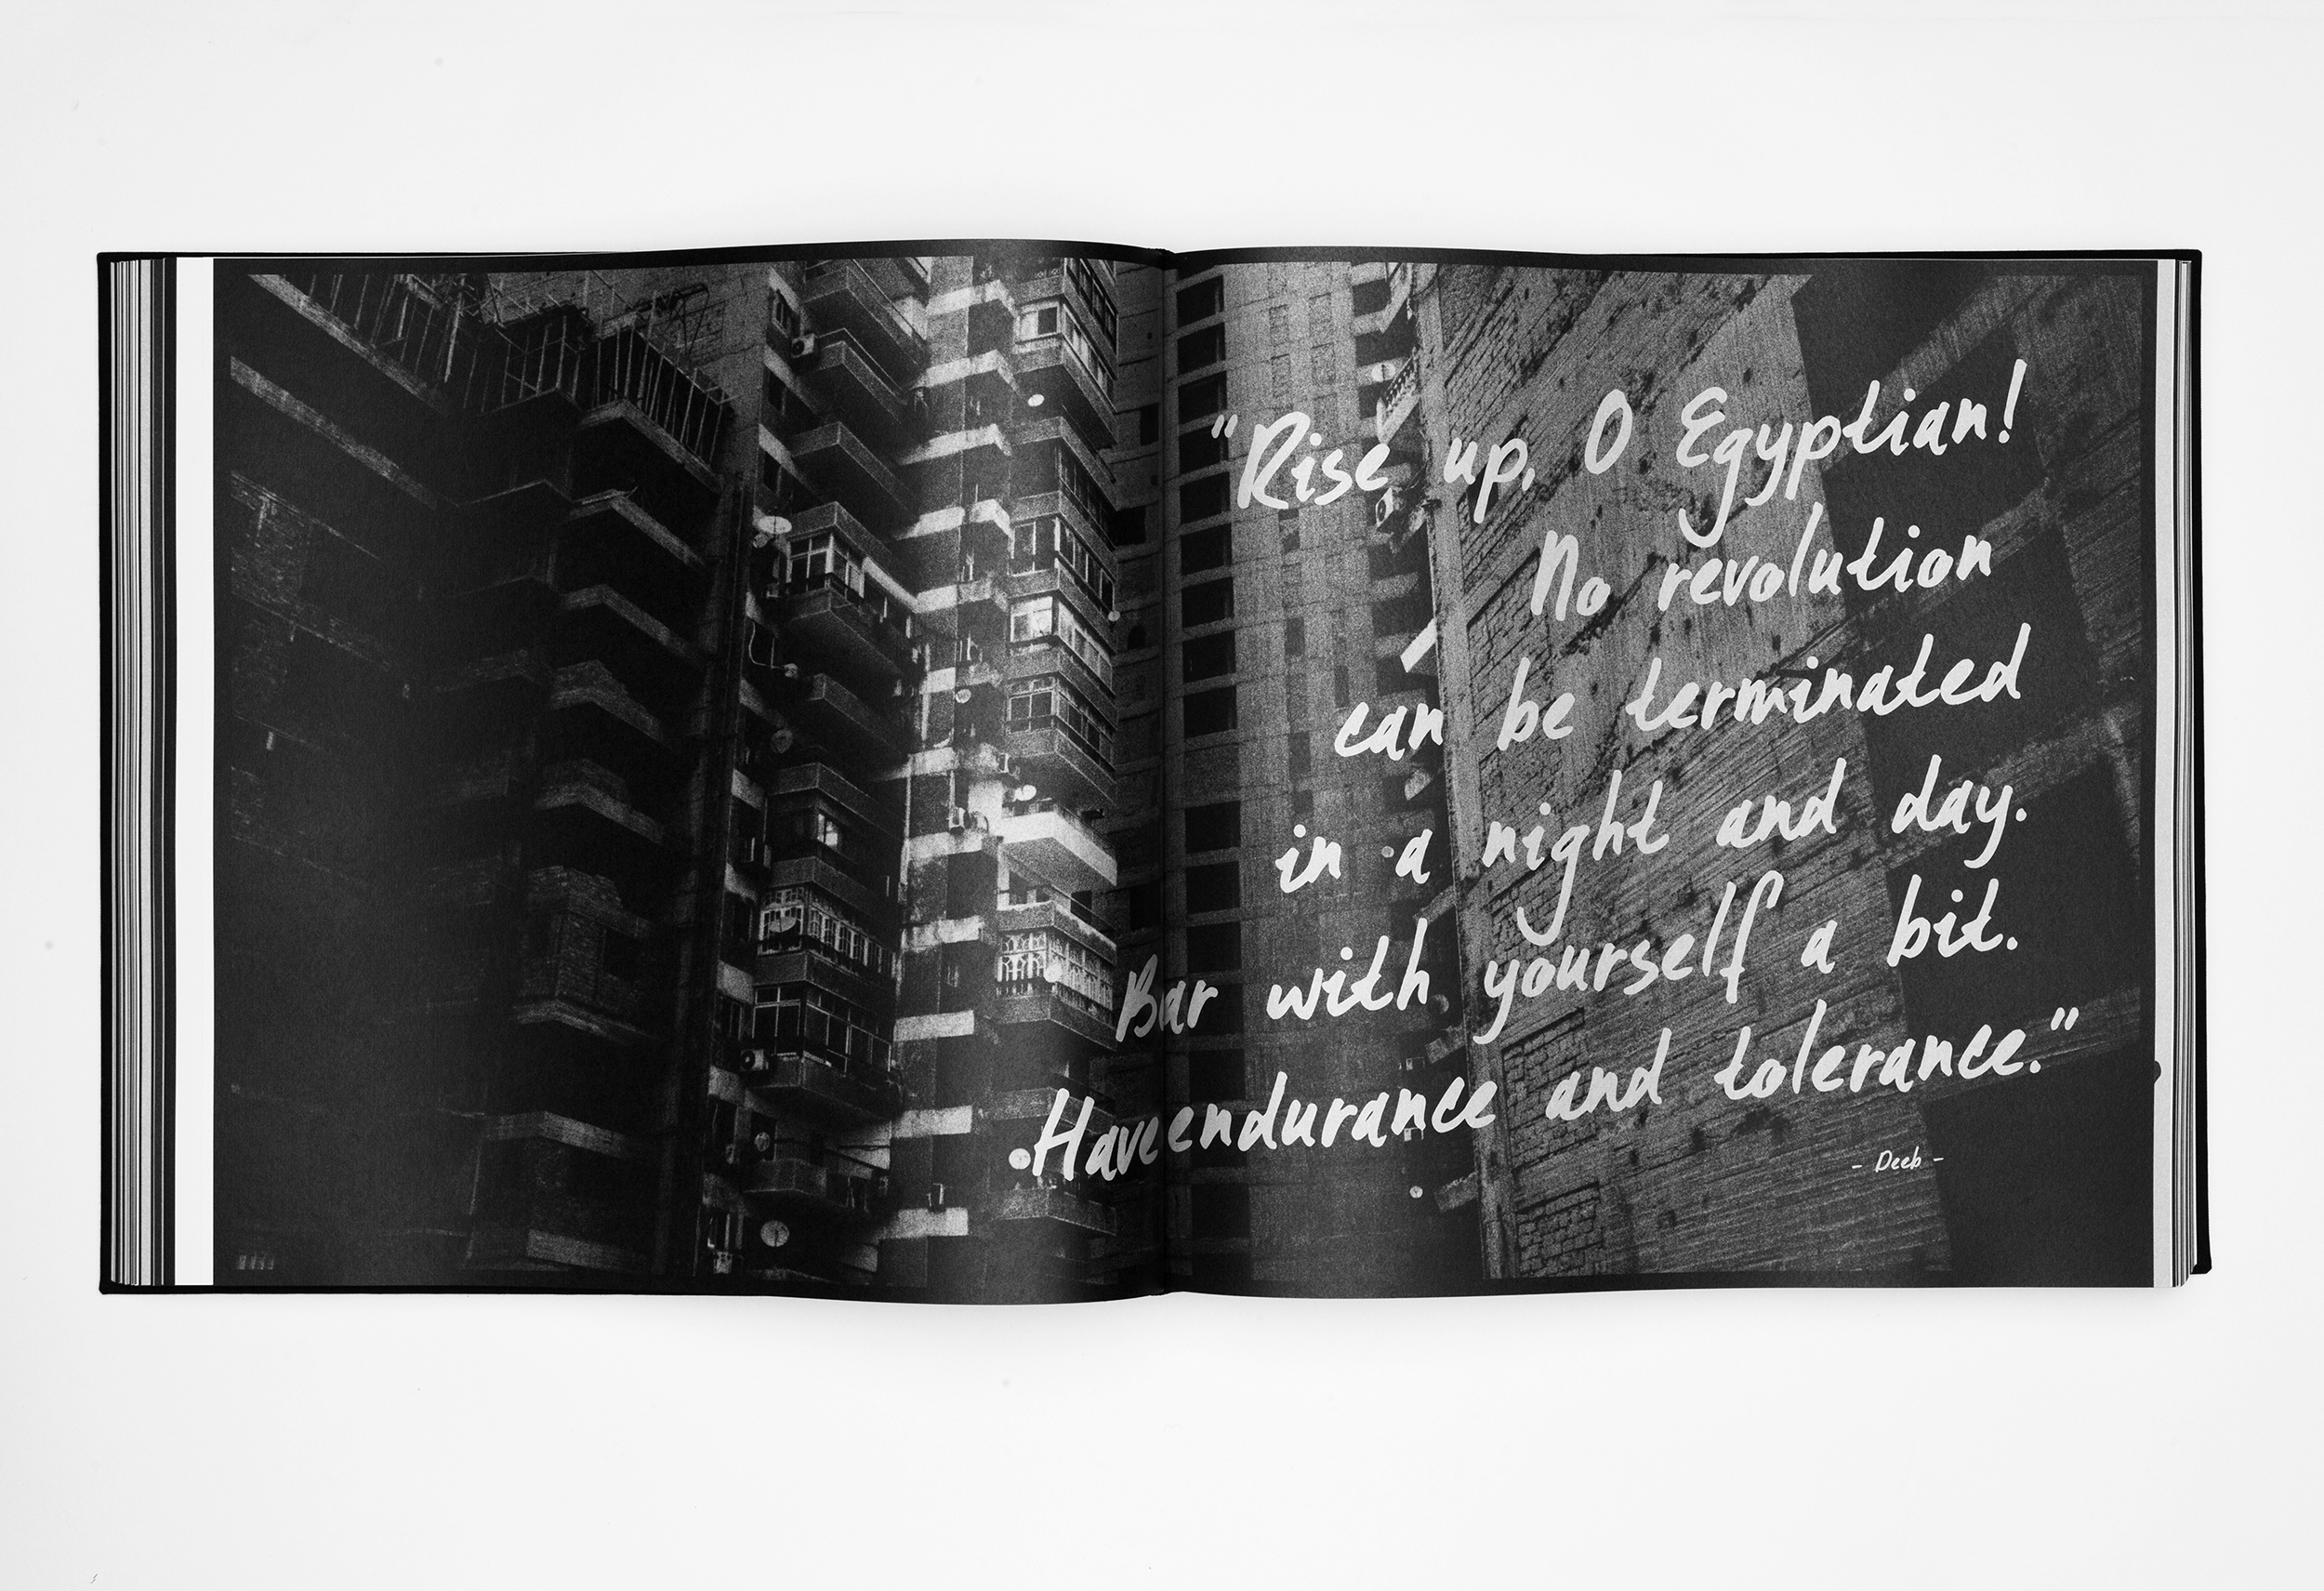 "Rise up, O Egyptian!
No revolution
can be terminated
in a night and day.
Bar with yourself a bit.
Have endurance and tolerance."
- Deeb -